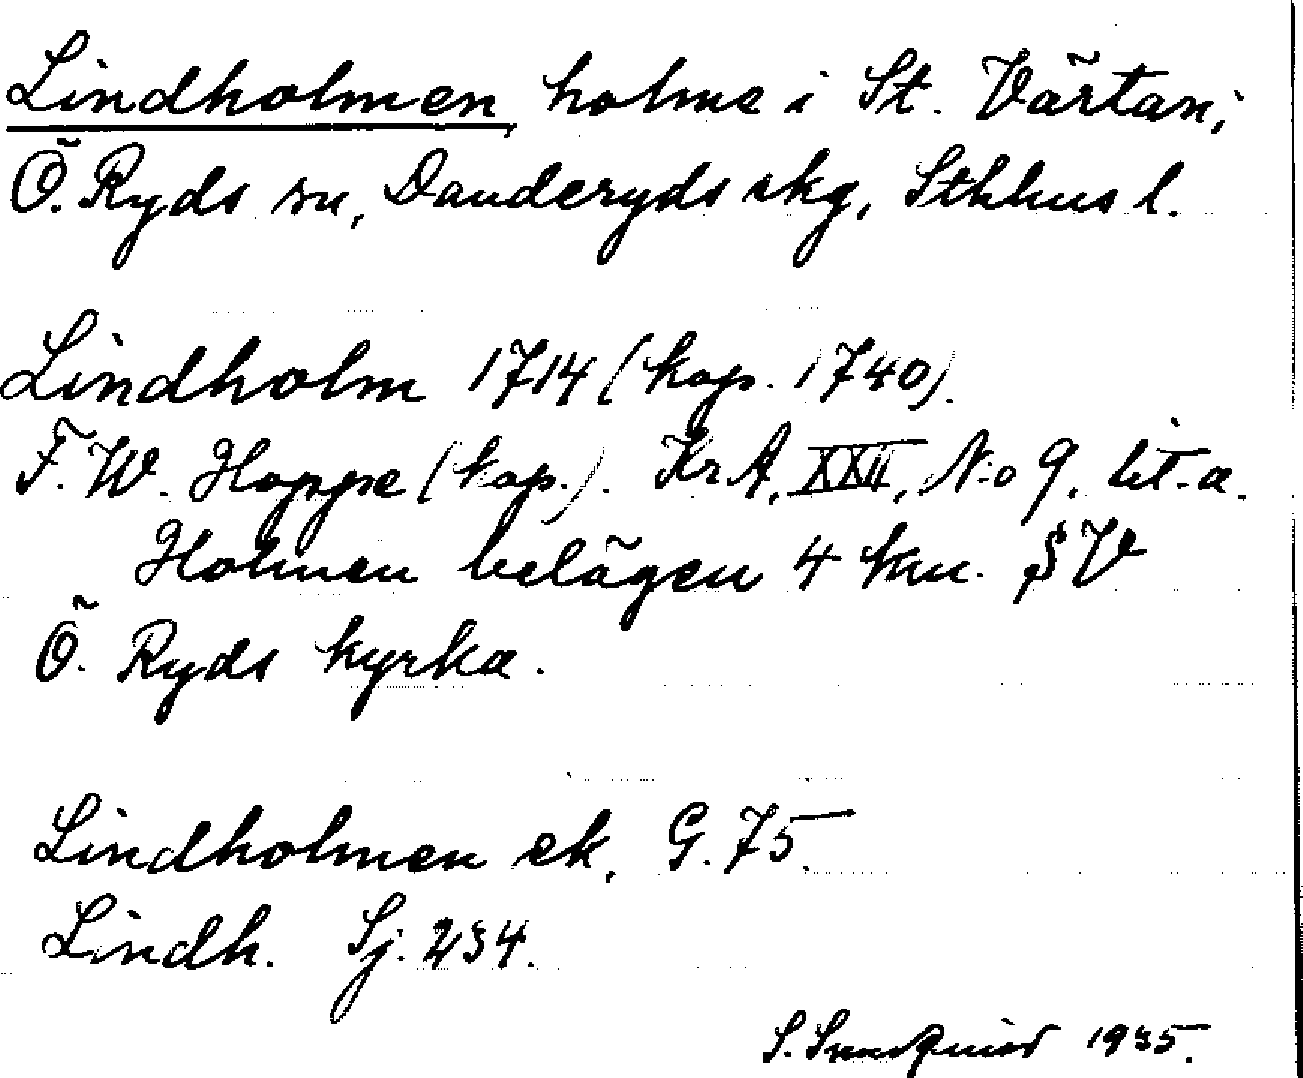 Lindholmen, holme i St. Värtan;
Ö. Ryds sn, Danderyds skg, Sthlms l.
Lindholm 1714 (kop. 1740).
F. W. Hoppe (kop.). KrA, XXII, N:o 9, lit. a.
Holmen belägen 4 km. SV
Ö. Ryds kyrka.
Lindholmen ek. G. 75.
Lindh. Sj. 234.
S. Sundquist 1935.